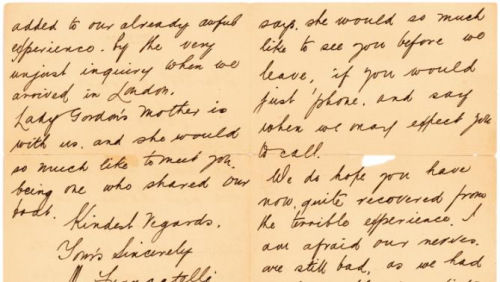 added to our already awful
experience. by the very
unjust inquiry when we
arrived in London.
Lady Gordon's Mother is
with us. and she would
so much like to meet you.
being one who shared our
boat.
Kindest Regards.
Yours Sincerely
says. she would so much
like to see you before we
leave, if you would
just 'phone. and say
when we may expect you
to call.
We do hope you have
now quite recovered from
the terrible experience. I
am afraid our nerves.
are still bad, as we had